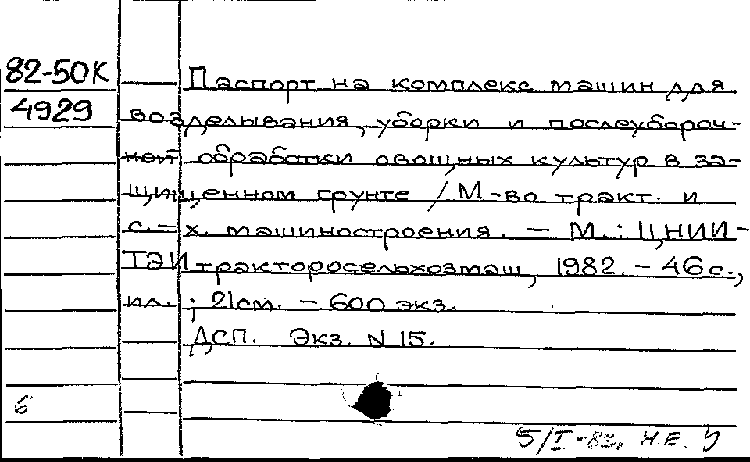 82-50К
4929
Паспорт на комплекс машин для
возделывания, уборки и послеубороч-
ной обработки овощных культур в за-
щищенном грунте / М-во тракт. и
с.-х. машиностроения. - М. : ЦНИИ-
ТЭИтракторосельхозмаш, 1982. - 46 с.,
ил. ; 21 см. - 600 экз.
ДСП. Экз. N 15.
6
5/I-83, Н.Е.